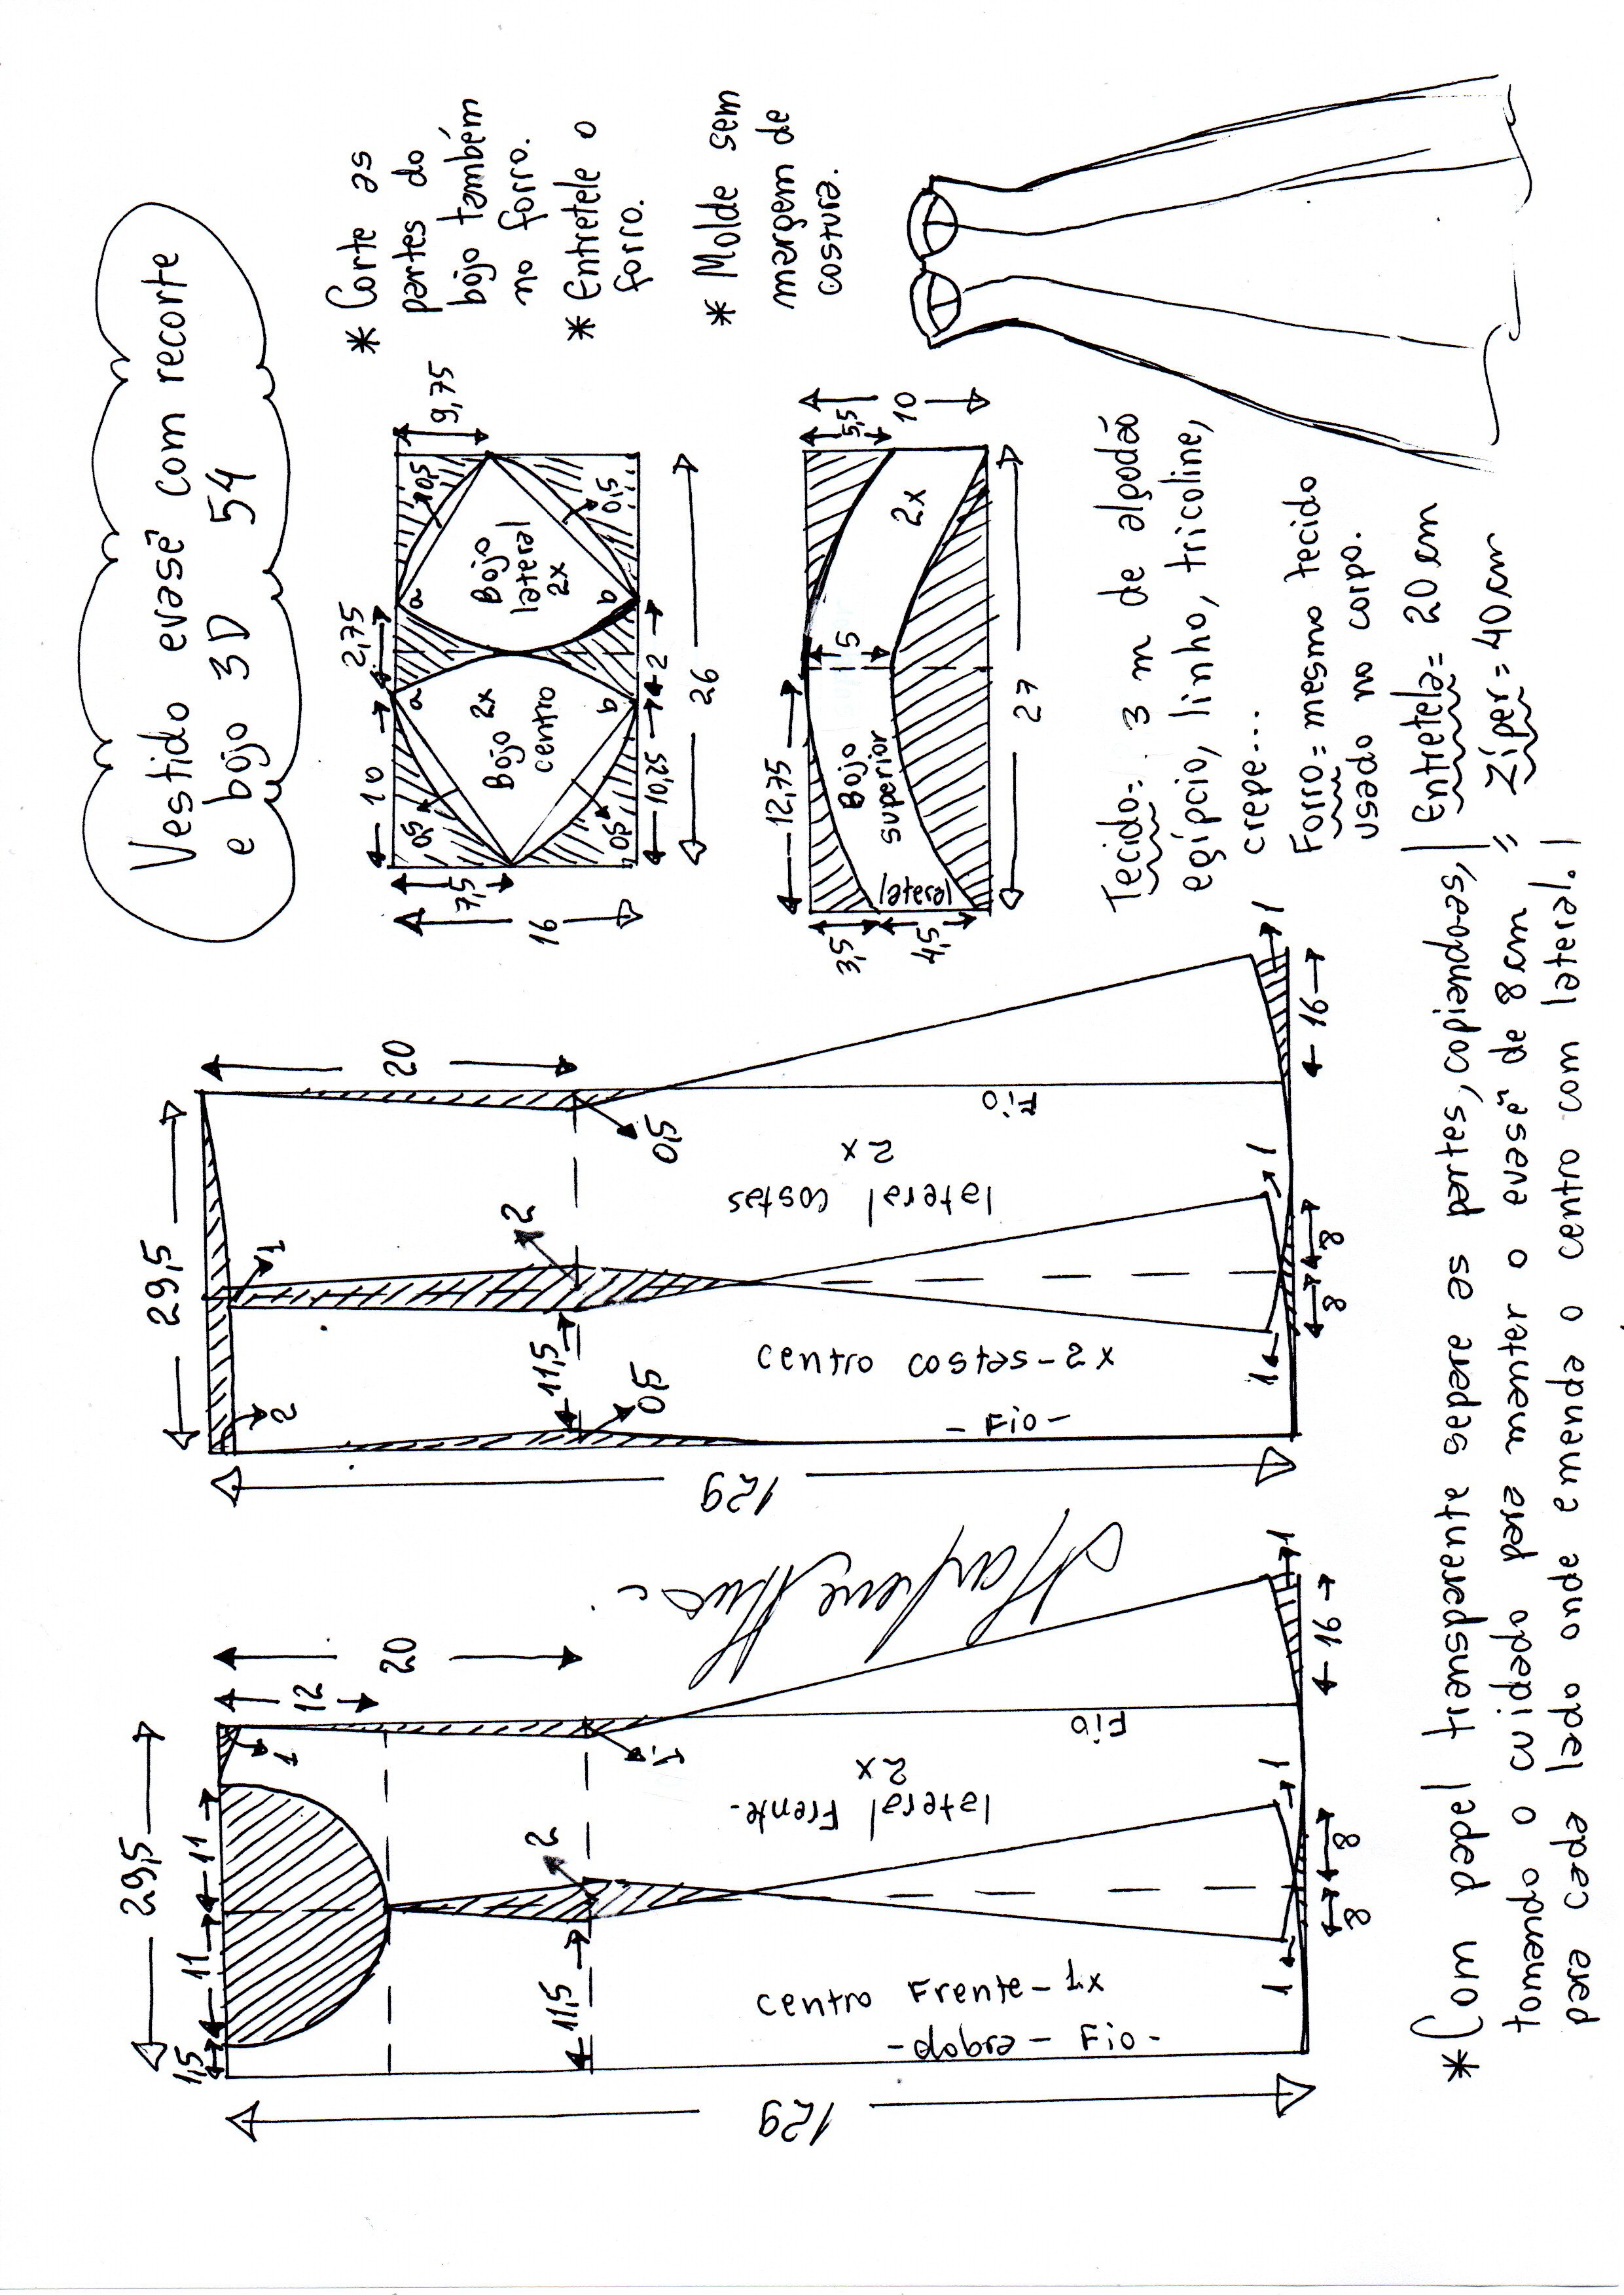 Vestido evasê com recorte
e bojo 3D 54
* Corte as
partes do
bojo também
no forro.
* Entretele o
forro.
* Molde sem
margem de
costura.
29,5
1,5
11
11
12
20
1
1,5
2
11,5
129
lateral Frente-
2x
Fio
centro Frente-1x
-dobra-Fio-
1
1
8
8
16
1
29,5
20
2
1
2
0,5
11,5
0,5
129
lateral costas
2x
Fio
centro costas-2x
-Fio-
1
1
8
8
16
1
10
2,75
9,75
7,5
16
0,5
0,5
0,5
0,5
a
a
b
b
Bojo 2x
centro
Bojo
lateral
2x
10,25
2
26
12,75
3,5
4,5
5
5,5
10
Bojo
superior
2x
lateral
27
Tecido: 3 m de algodão
egípcio, linho, tricoline,
crepe...
Forro = mesmo tecido
usado no corpo.
Entretela = 20 cm
Zíper = 40 cm
* Com papel transparente separe as partes, copiandoas,
tomando o cuidado para manter o evasê de 8 cm
para cada lado onde emenda o centro com lateral.